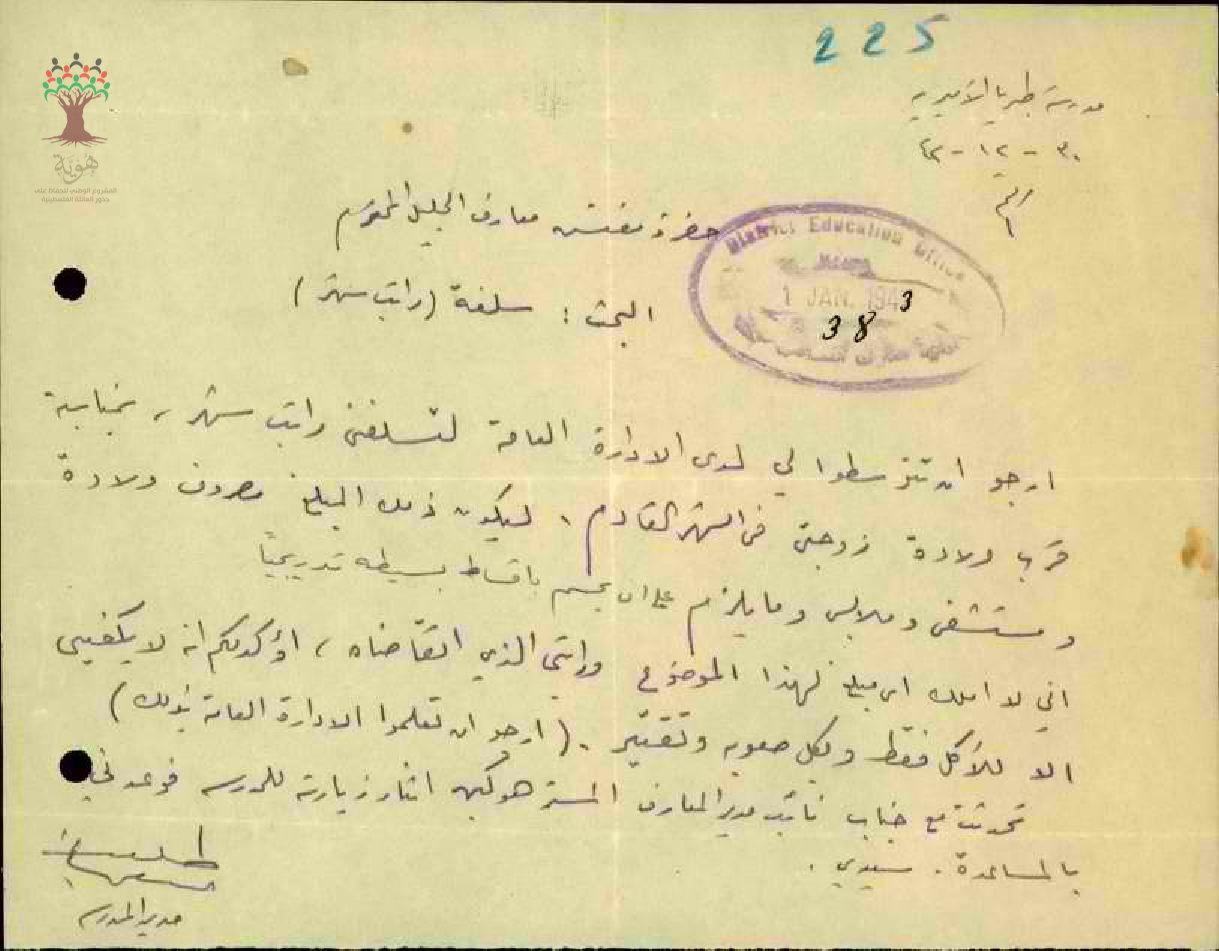 225
مدرسة طبريا الأميرية
٣٠ - ١٢ - ٤٢
حضرة مفتش معارف الجليل المحترم
District Education Office
1 JAN. 1943
38
البحث : سلفة (راتب شهر)
ارجو ان تتوسطوا لي لدى الادارة العامة لتسلفني راتب شهر ، بمناسبة
قرب ولادة زوجتي في الشهر القادم ، ليكون ذلك المبلغ مصروف ولادة
ومستشفى وملابس وما يلزم على ان يحسم باقساط بسيطه تدريجياً
اني لا املك اي مبلغ لهذا الموضوع وراتبي الذي اتقاضاه ، اؤكد لكم انه لا يكفيني
الا للأكل فقط وبكل صعوبه وتقتير . (ارجو ان تعلموا الادارة العامة بذلك)
تحدثت مع جناب نائب مدير المعارف المستر هوكنه اثناء زيارته للمدرسه فوعدني
بالمساعدة . سيدي .
مدير المدرسه
هُويَّة
المشروع الوطني للحفاظ على
جذور العائلة الفلسطينية